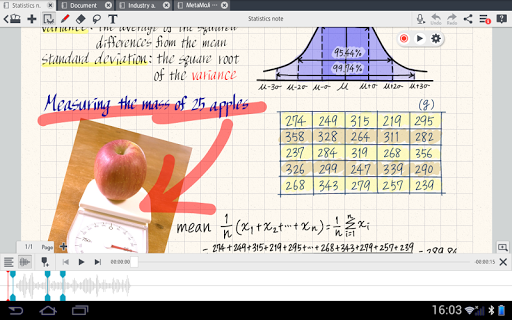 Statistics n..
Document
Industry a..
MetaMoJi ...
Statistics note
Undo
Redo
variance: The average of the squared
differences from the mean
standard deviation: the square root
of the variance
95.44%
99.74%
μ-3σ μ-2σ μ-σ μ μ+σ μ+2σ μ+3σ
Measuring the mass of 25 apples
(g)
274 249 315 219 295
358 328 264 311 282
237 284 319 268 356
326 299 247 339 290
268 343 279 257 239
mean 1/n (x₁+x₂+···+xₙ) = 1/n Σ xᵢ
n
i=1
274+249+315+219+295+···+268+343+279+257+239
1/1 Page
00:00:00
00:00:15
16:03